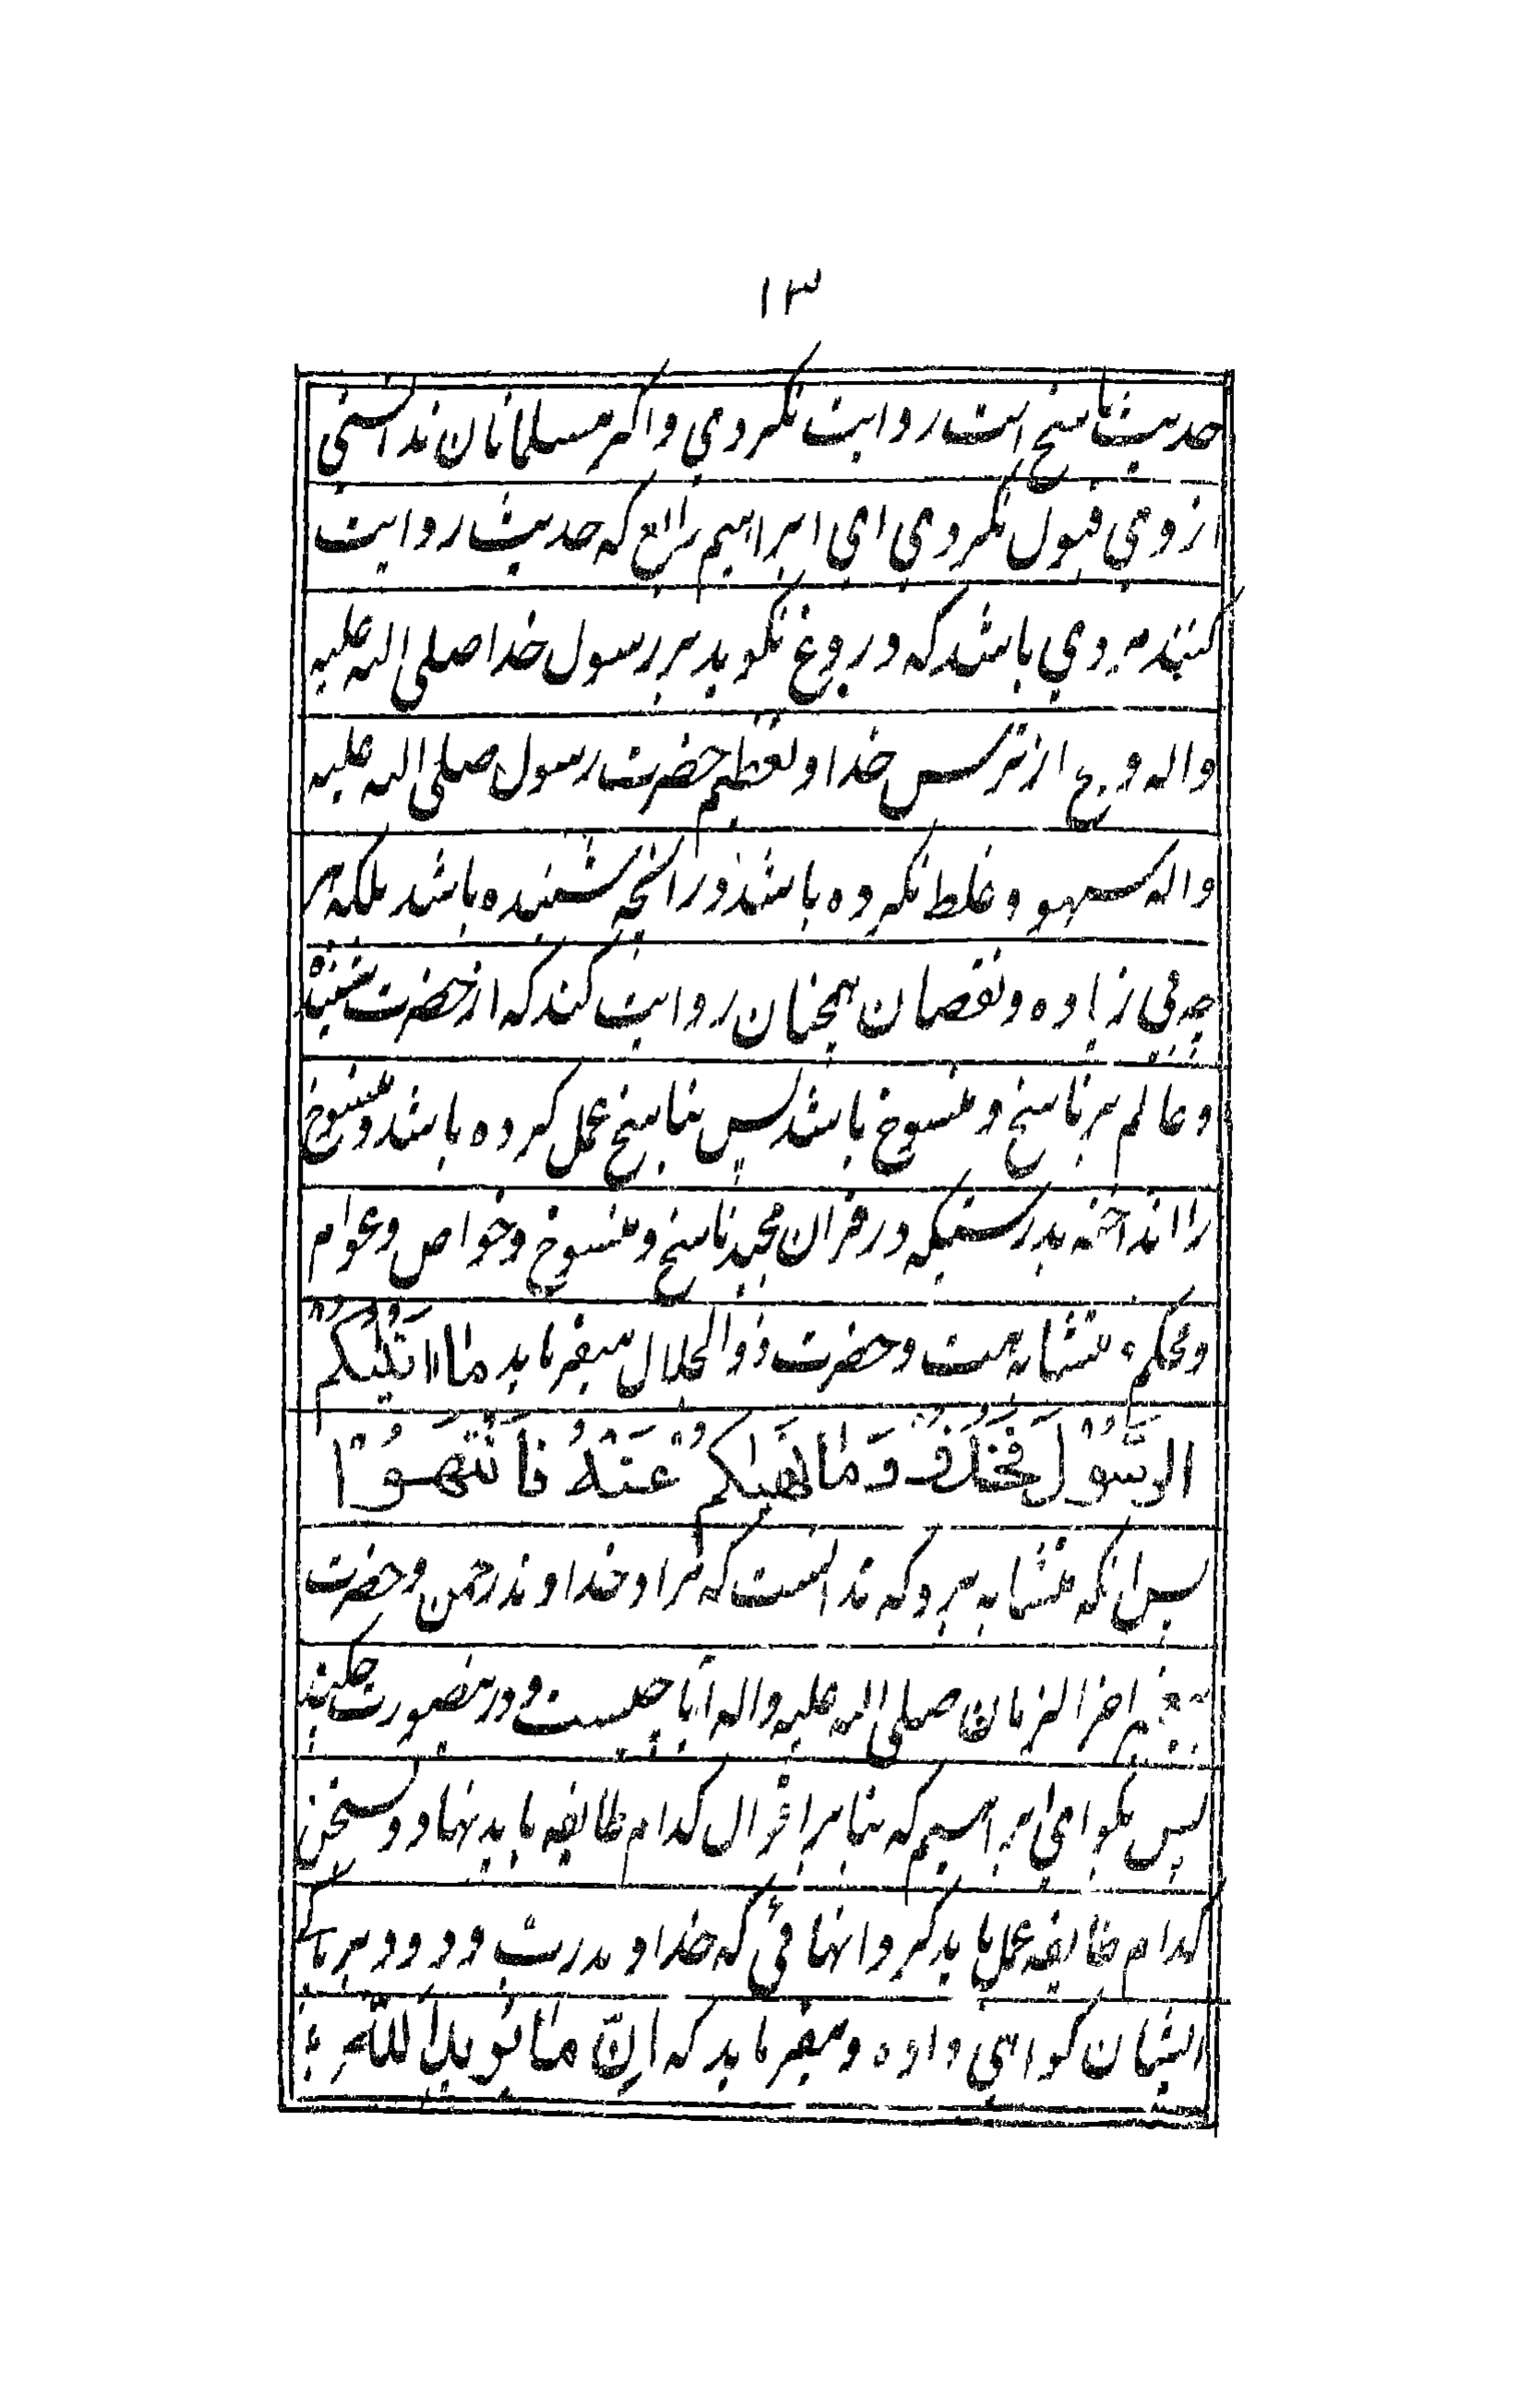 ١٣
حدیث ناسخ است روایت نکردی واکر مسلمانان ندانستی
از وی قبول نکردی ای ابراهیم رابع که حدیث روایت
کنند مردی باشد که دروغ نکوید بر رسول خدا صلی الله علیه
واله و از ترس خدا و تعظیم حضرت رسول صلی الله علیه
واله سهو و غلط نکرده باشد در انچه شنیده باشد بلکه هر
چه بی زیاده و نقصان همچنان روایت کند که از حضرت شنید
و عالم بر ناسخ و منسوخ باشد پس بناسخ عمل کرده باشد و منسوخ
را انداخته بدرستیکه در قران مجید ناسخ و منسوخ و خواص و عوام
و محکم و متشابه هست و حضرت ذوالجلال میفرماید مَا اٰتٰیکُمُ
الرَّسُوْلُ فَخُذُوْهُ وَمَا نَهٰیکُمْ عَنْهُ فَانْتَهُوْا
پس انکه متشابه برو که ندانست که مراد خداوند رحمن و حضرت
پیغمبر اخر الزمان صلی الله علیه واله ایا چیست و درینصورت چکنند
پس بکو ای ابراهیم که بنا بر اقوال کدام طایفه باید نهاد و سخن
کدام طایفه عمل باید کرد انهائی که خداوند درشب و روز بر پاکی
ایشان کواهی داده و میفرماید که